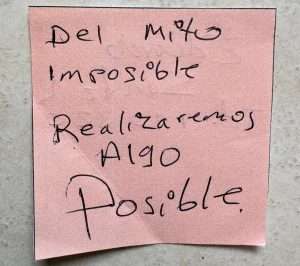 Del mito
Imposible
Realizaremos
Algo
Posible.